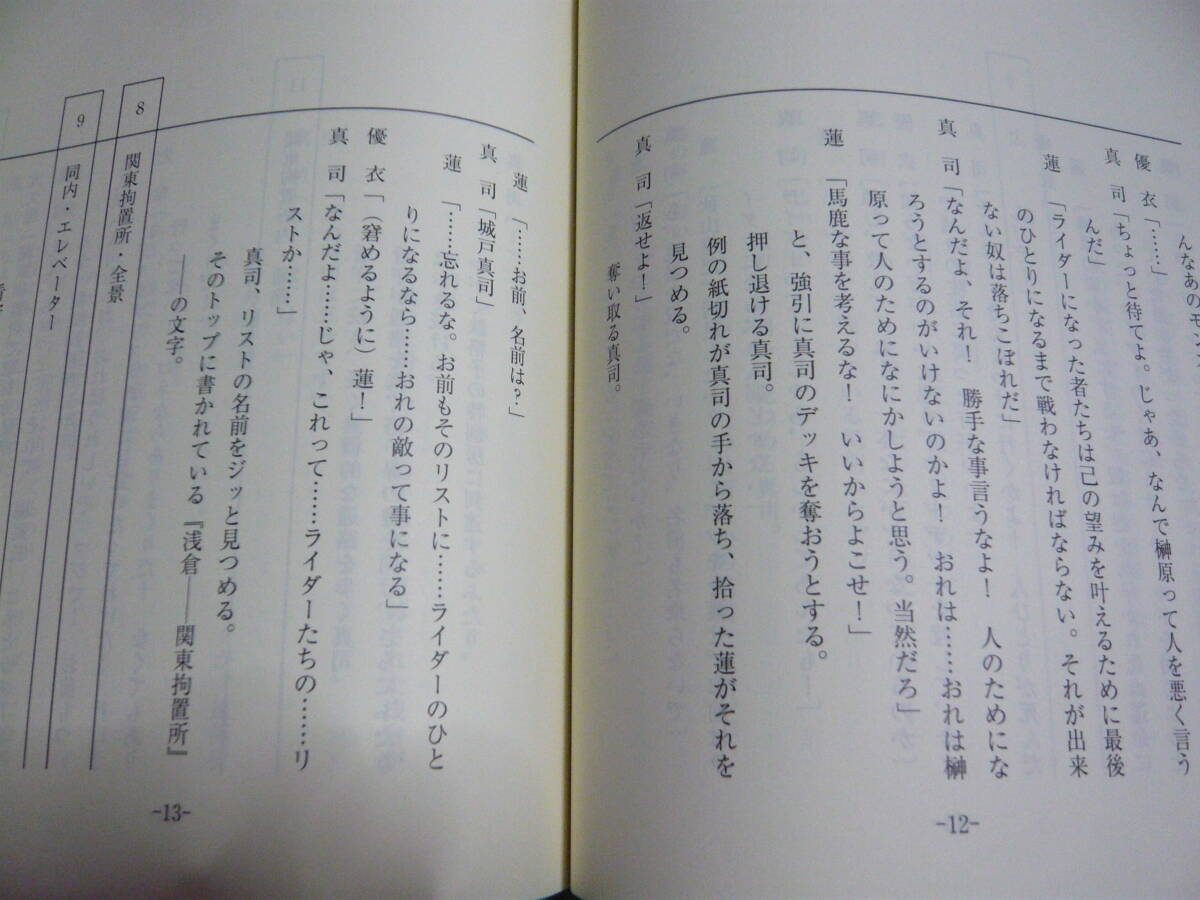 んなあのモン
優衣「……」
真司「ちょっと待てよ。じゃあ、なんで榊原って人を悪く言う
んだ」
蓮「ライダーになった者たちは己の望みを叶えるために最後
のひとりになるまで戦わなければならない。それが出来
ない奴は落ちこぼれだ」
真司「なんだよ、それ！　勝手な事言うなよ！　人のためにな
ろうとするのがいけないのかよ！　おれは……おれは榊
原って人のためになにかしようと思う。当然だろ」
蓮「馬鹿な事を考えるな！　いいからよこせ！」
と、強引に真司のデッキを奪おうとする。
押し退ける真司。
例の紙切れが真司の手から落ち、拾った蓮がそれを
見つめる。
真司「返せよ！」
奪い取る真司。
-12-
蓮「……お前、名前は？」
真司「城戸真司」
蓮「……忘れるな。お前もそのリストに……ライダーのひと
りになるなら……おれの敵って事になる」
優衣「（窘めるように）蓮！」
真司「なんだよ……じゃ、これって……ライダーたちの……リ
ストか……」
真司、リストの名前をジッと見つめる。
そのトップに書かれている『浅倉――関東拘置所』
――の文字。
8　関東拘置所・全景
9　同内・エレベーター
-13-